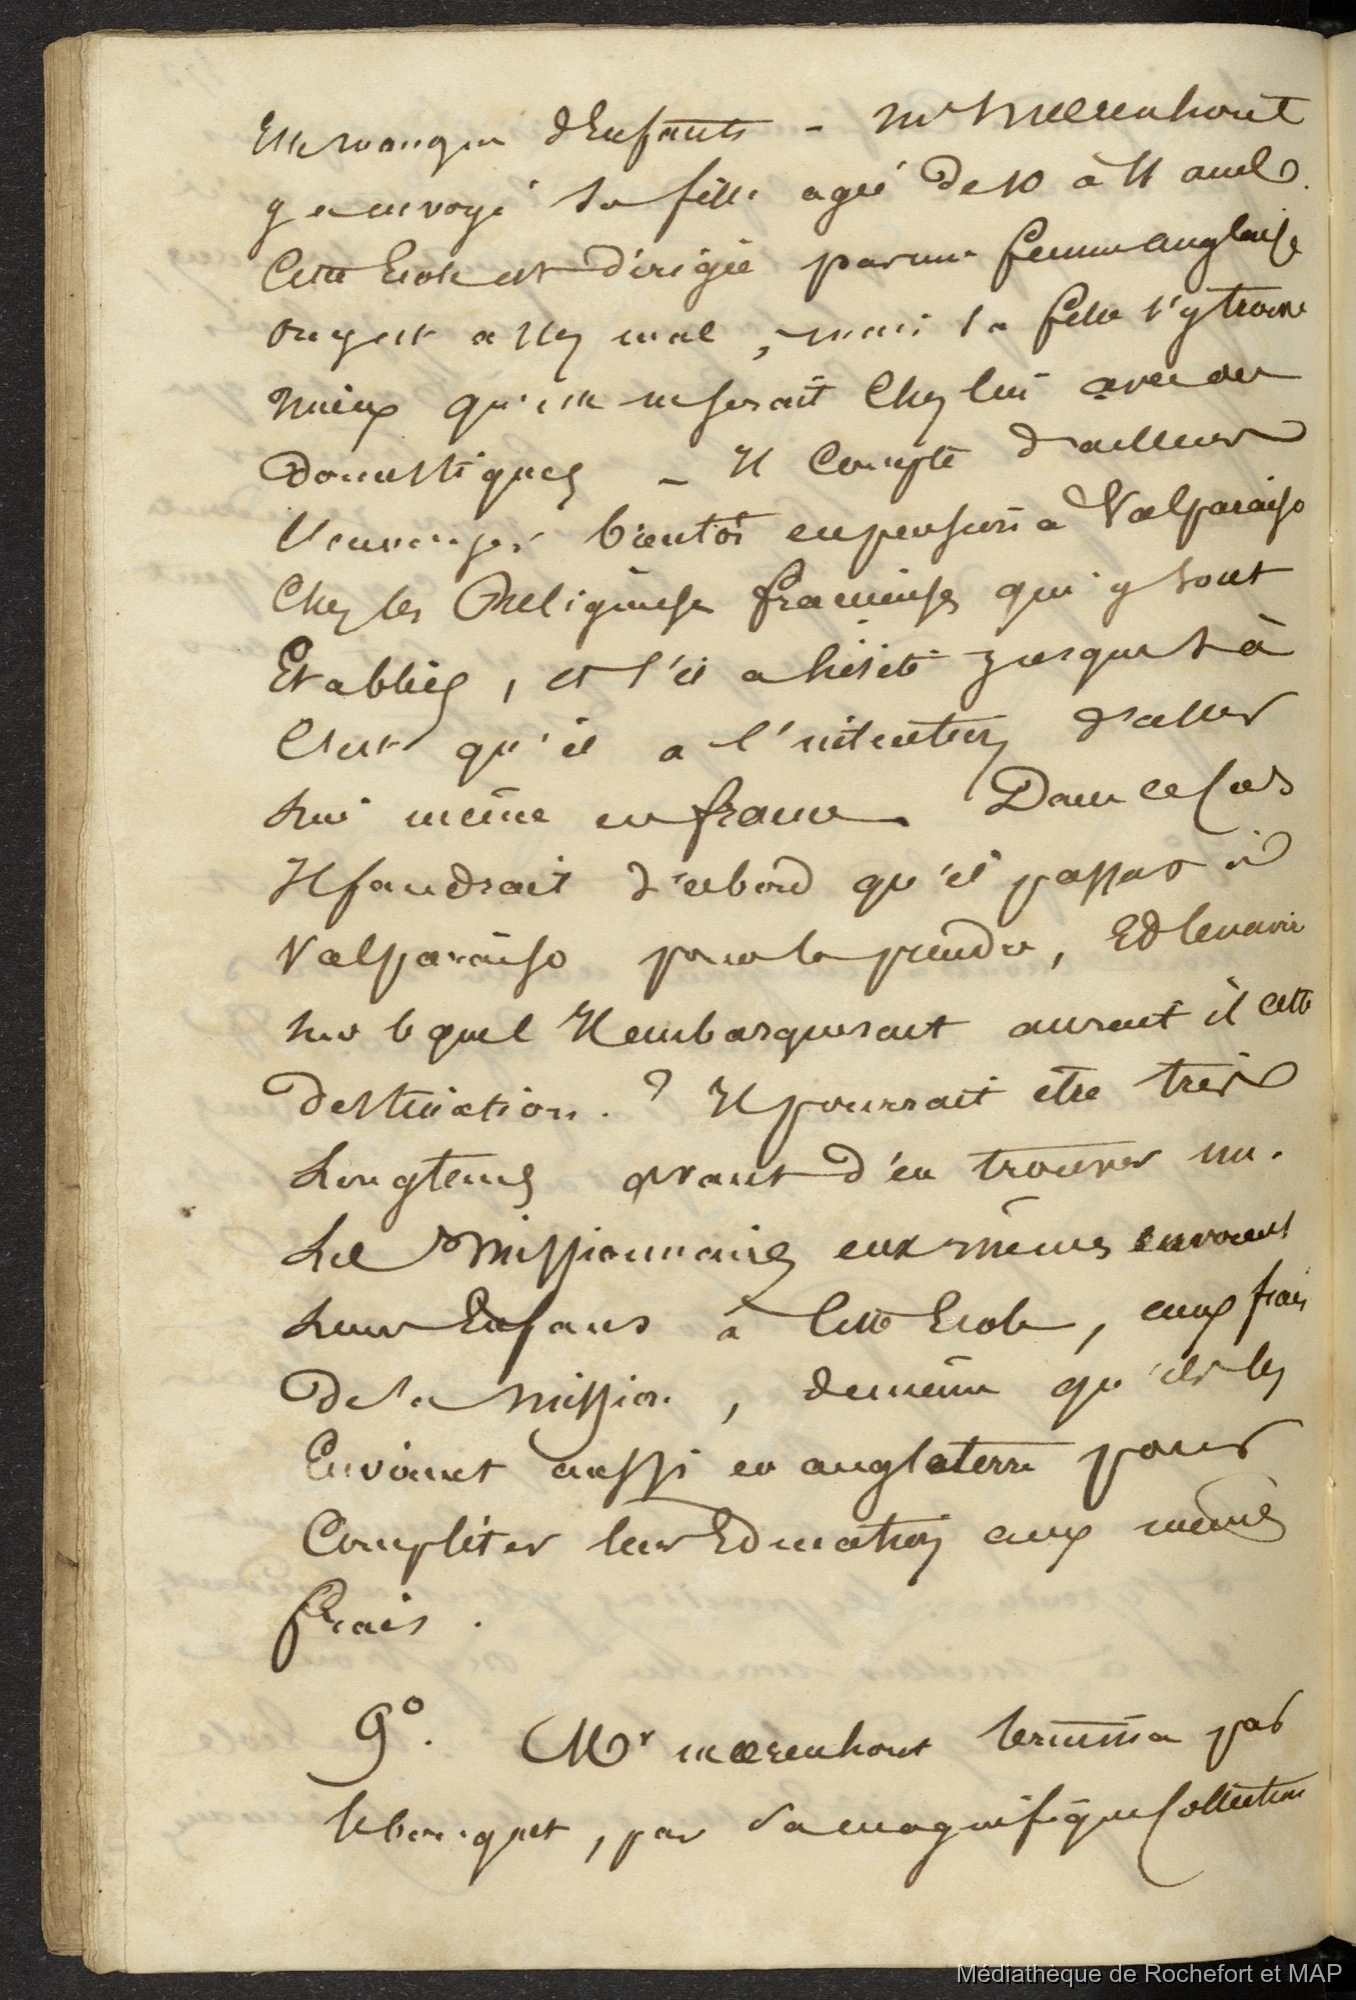 Elle manque d'Enfants - Mr Mœrenhout
y a envoyé sa fille agée de 10 à 11 ans.
Cette Ecole est dirigée par une femme anglaise
on y est assez mal, mais sa fille s'y trouve
mieux qu'elle ne serait chez lui avec des
Domestiques - Il compte d'ailleurs
l'envoyer bientôt en pension à Valparaiso
Chez les Religieuses françaises qui y sont
Etablies, et s'il a hésité jusques là
C'est qu'il a l'intention d'aller
lui même en france. Dans ce Cas
Il faudrait d'abord qu'il passat à
Valparaiso pour la prendre, Et le navire
sur lequel Il embarquerait aurait il cette
destination. ? Il pourrait etre très
Longtems avant d'en trouver un.
Les Missionnaires eux mêmes envoient
leurs Enfans à Cette Ecole, aux frais
de la Mission, de même qu'ils les
Envoient aussi en angleterre pour
Completer leur Education aux mêmes
frais.
9°. Mr mœrenhout termina par
le bouquet, par sa magnifique Collection
Médiathèque de Rochefort et MAP